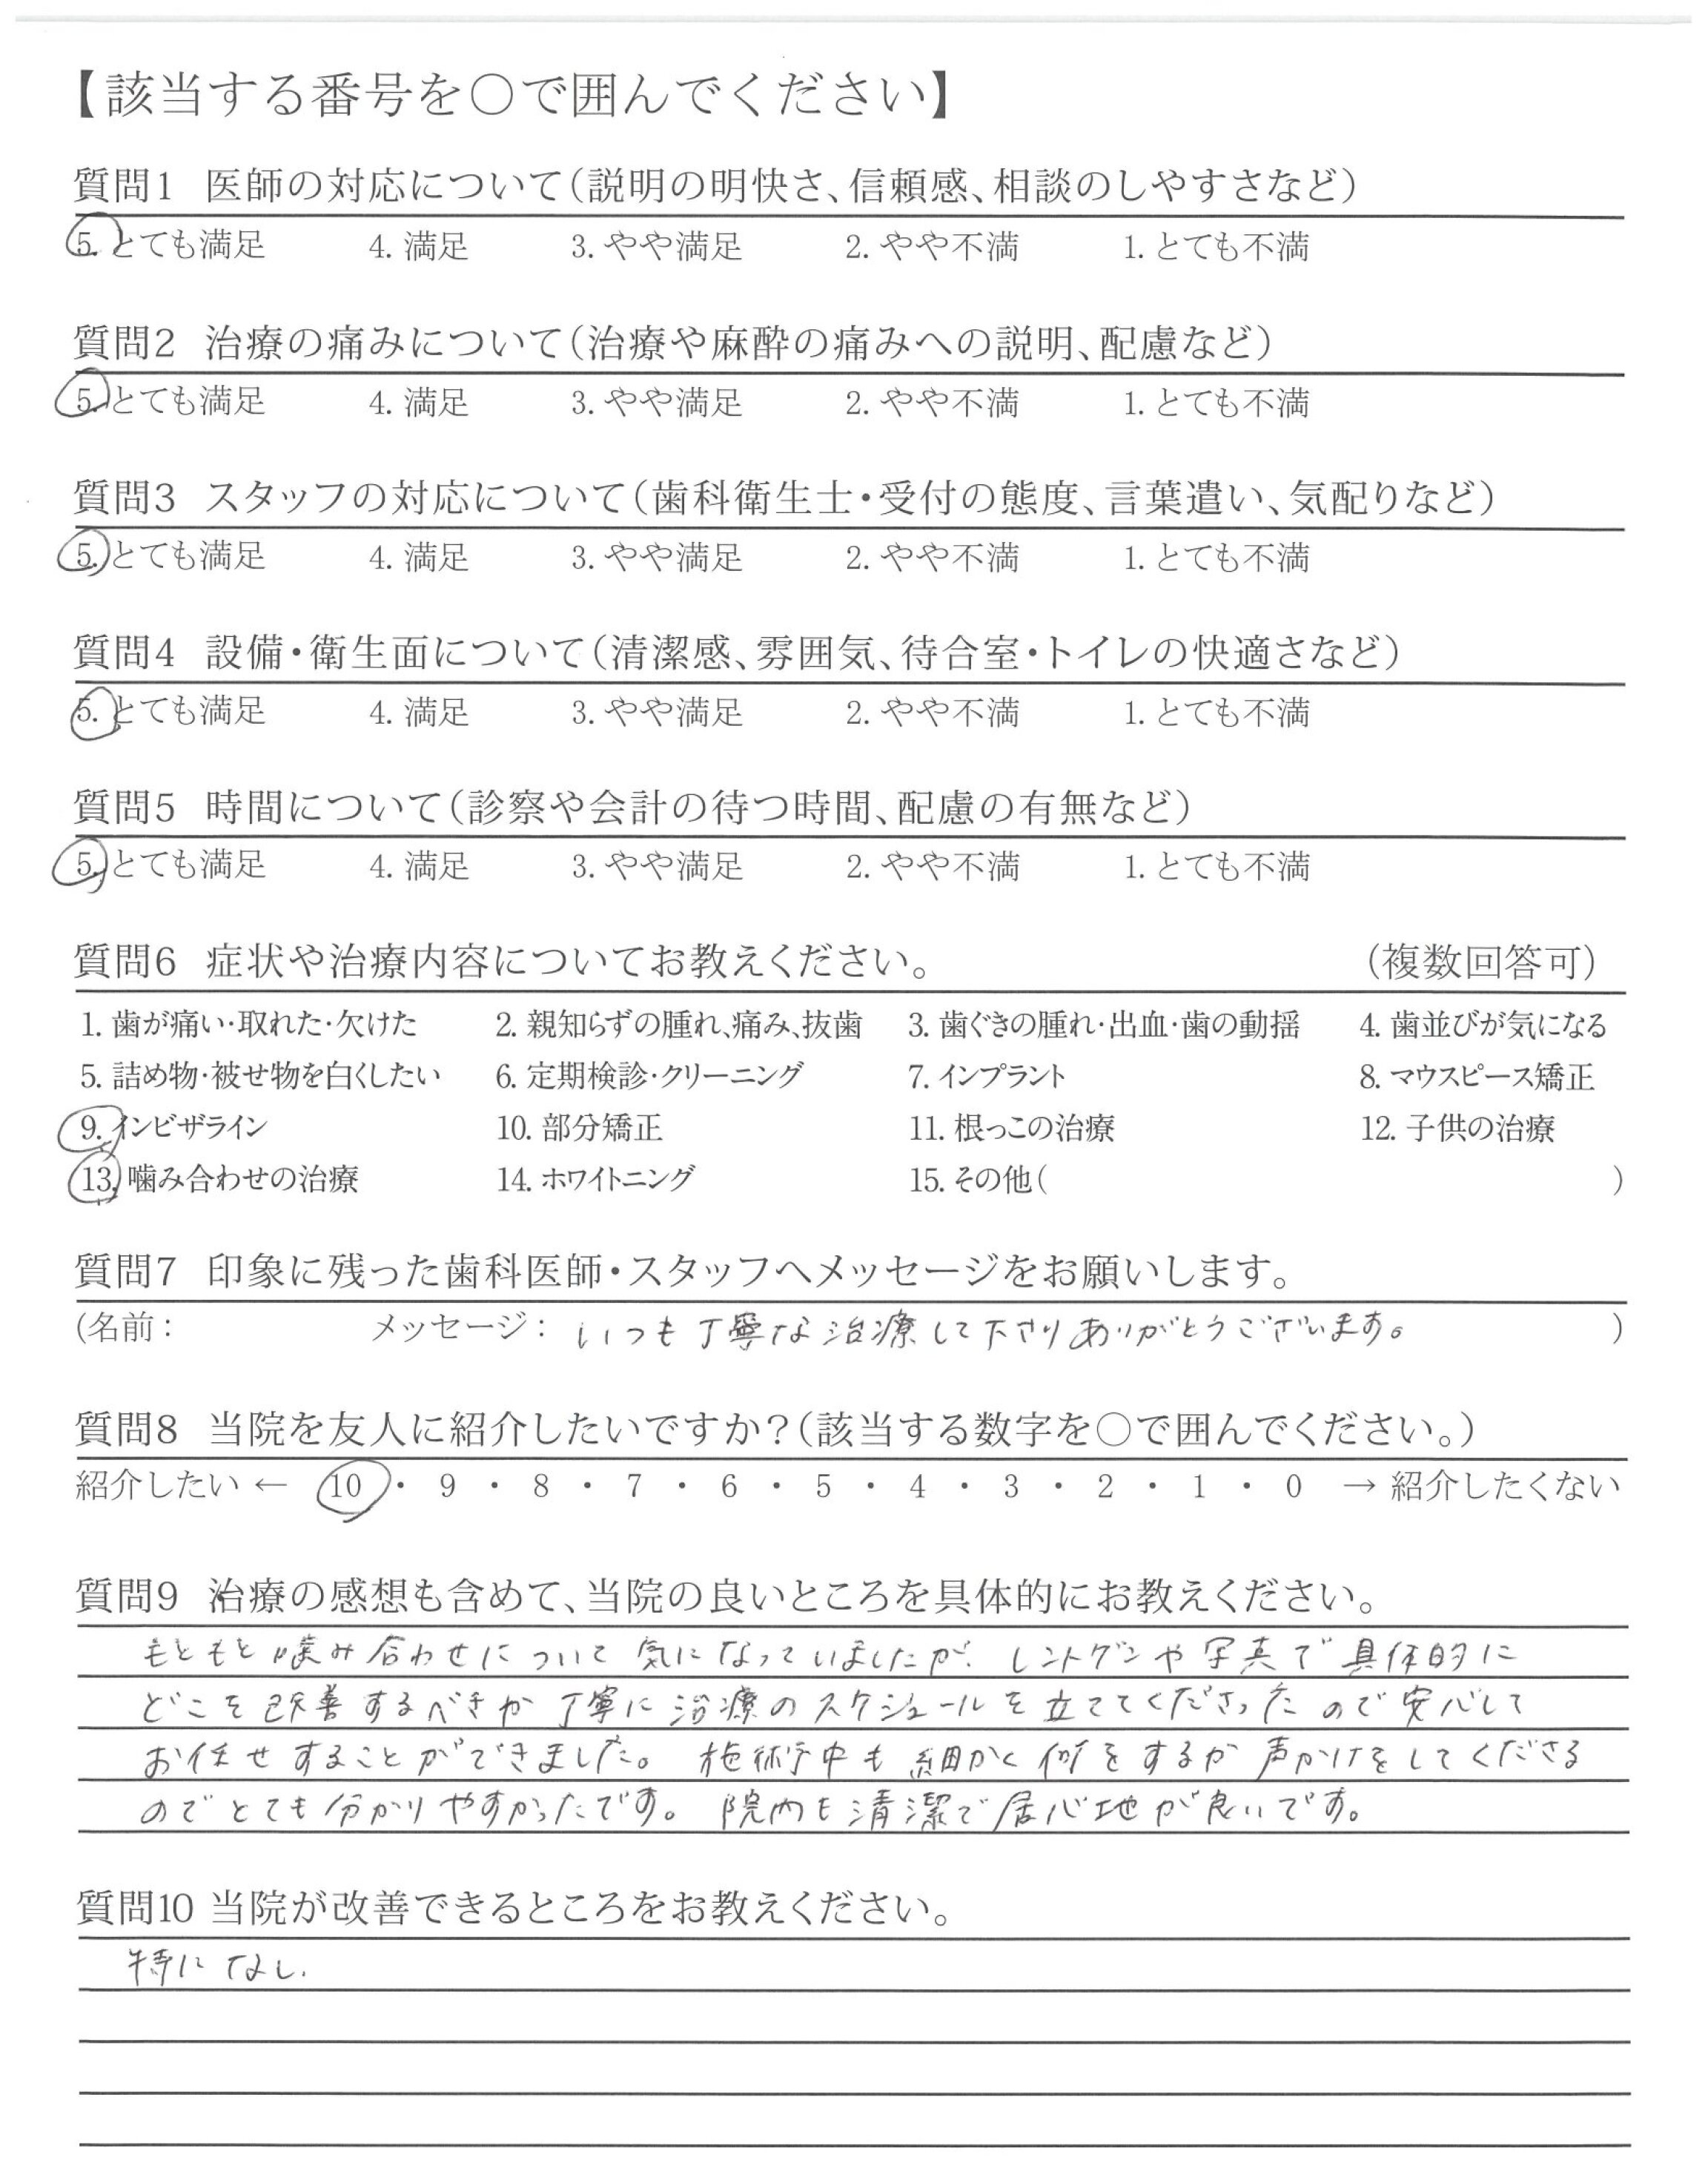 【該当する番号を○で囲んでください】
質問1 医師の対応について（説明の明快さ、信頼感、相談のしやすさなど）
5. とても満足 4. 満足 3. やや満足 2. やや不満 1. とても不満
質問2 治療の痛みについて（治療や麻酔の痛みへの説明、配慮など）
5. とても満足 4. 満足 3. やや満足 2. やや不満 1. とても不満
質問3 スタッフの対応について（歯科衛生士・受付の態度、言葉遣い、気配りなど）
5. とても満足 4. 満足 3. やや満足 2. やや不満 1. とても不満
質問4 設備・衛生面について（清潔感、雰囲気、待合室・トイレの快適さなど）
5. とても満足 4. 満足 3. やや満足 2. やや不満 1. とても不満
質問5 時間について（診察や会計の待つ時間、配慮の有無など）
5. とても満足 4. 満足 3. やや満足 2. やや不満 1. とても不満
質問6 症状や治療内容についてお教えください。 （複数回答可）
1. 歯が痛い・取れた・欠けた 2. 親知らずの腫れ、痛み、抜歯 3. 歯ぐきの腫れ・出血・歯の動揺 4. 歯並びが気になる
5. 詰め物・被せ物を白くしたい 6. 定期検診・クリーニング 7. インプラント 8. マウスピース矯正
9. インビザライン 10. 部分矯正 11. 根っこの治療 12. 子供の治療
13. 噛み合わせの治療 14. ホワイトニング 15. その他（ ）
質問7 印象に残った歯科医師・スタッフへメッセージをお願いします。
（名前： メッセージ： いつも丁寧な治療して下さりありがとうございます。 ）
質問8 当院を友人に紹介したいですか？（該当する数字を○で囲んでください。）
紹介したい ← 10 ・ 9 ・ 8 ・ 7 ・ 6 ・ 5 ・ 4 ・ 3 ・ 2 ・ 1 ・ 0 → 紹介したくない
質問9 治療の感想も含めて、当院の良いところを具体的にお教えください。
もともと噛み合わせについて気になっていましたが、レントゲンや写真で具体的に
どこを改善するべきか丁寧に治療のスケジュールを立ててくださったので安心して
お任せすることができました。施術中も細かく何をするか声かけをしてくださる
のでとても分かりやすかったです。院内も清潔で居心地が良いです。
質問10 当院が改善できるところをお教えください。
特になし.